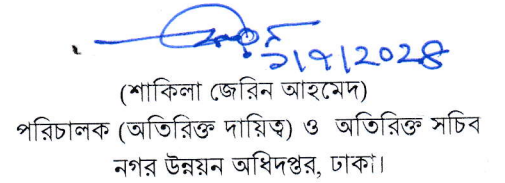 ১/৭/২০২৪
(শাকিলা জেরিন আহমেদ)
পরিচালক (অতিরিক্ত দায়িত্ব) ও অতিরিক্ত সচিব
নগর উন্নয়ন অধিদপ্তর, ঢাকা।